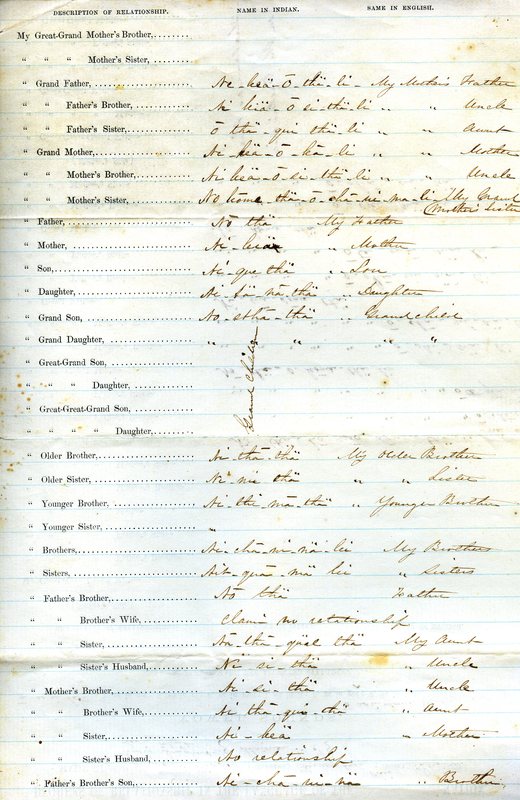 DESCRIPTION OF RELATIONSHIP. NAME IN INDIAN. SAME IN ENGLISH.
My Great-Grand Mother's Brother,........
" " " Mother's Sister, ........
" Grand Father,................ Ne-keä-ō-thä-li- My Mothers Father
" " Father's Brother,......... Ni keä-ō-si-thä-li " " Uncle
" " Father's Sister,.......... Ō thä-qui thä-li " " Aunt
" Grand Mother,................ Ni-keä-ō-kä-li " " Mother
" " Mother's Brother,......... Ni keä-ō-si-thä-li " " Uncle
" " Mother's Sister,.......... My Grand
Mother Sister
" Father,...................... Nō thä My Father
" Mother, ..................... Ni-keä " Mother
" Son,......................... Ni-que thä " Son
" Daughter,.................... Ni-tä-nä-thä " Daughter
" Grand Son, .................. No-sthä-thä " Grandchild
" Grand Daughter, ............. " " " "
" Great-Grand Son, ............
" " " Daughter, .............
Grand Child
" Great-Great-Grand Son,.......
" " " " Daughter,.............
" Older Brother,............... Ni-thä-thä My Older Brother
" Older Sister, ............... Ni-mi thä " " Sister
" Younger Brother, ............ Ni-thi-mä-thä " Younger Brother
" Younger Sister, ............. "
" Brothers,.................... Ni-chä-ni-nä-li My Brothers
" Sisters, .................... " Sisters
" Father's Brother,............ Nō thä Father
" " Brother's Wife,........... Claim no relationship
" " Sister, .................. My Aunt
" " Sister's Husband,......... Ni si-thä " Uncle
" Mother's Brother, ........... Ni-si-thä " Uncle
" " Brother's Wife,........... Ni thä-qui-thä " Aunt
" " Sister,................... Ni-keä " Mother
" " Sister's Husband, ........ No relationship
" Father's Brother's Son,...... Ni-chä-ni-nä " Brother,